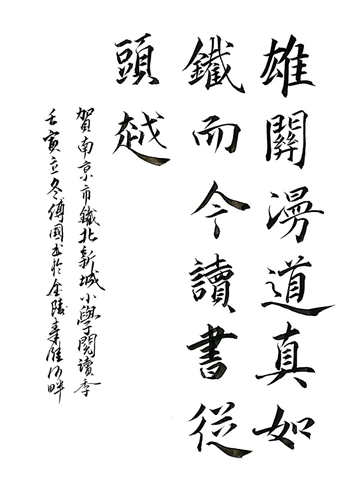 雄關漫道真如
鐵而今讀書從
頭越
賀南京市鐵北新城小學閱讀季
壬寅立冬傅國書於金陵秦淮河畔